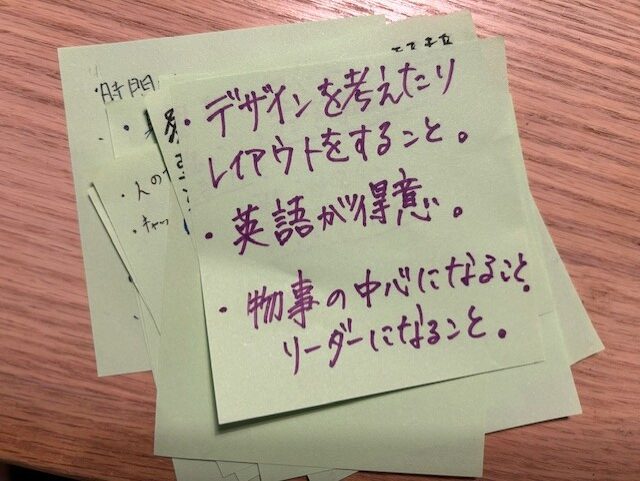 ・デザインを考えたり
レイアウトをすること。
・英語が得意。
・物事の中心になること
リーダーになること。
時間
・人の
・キャッ